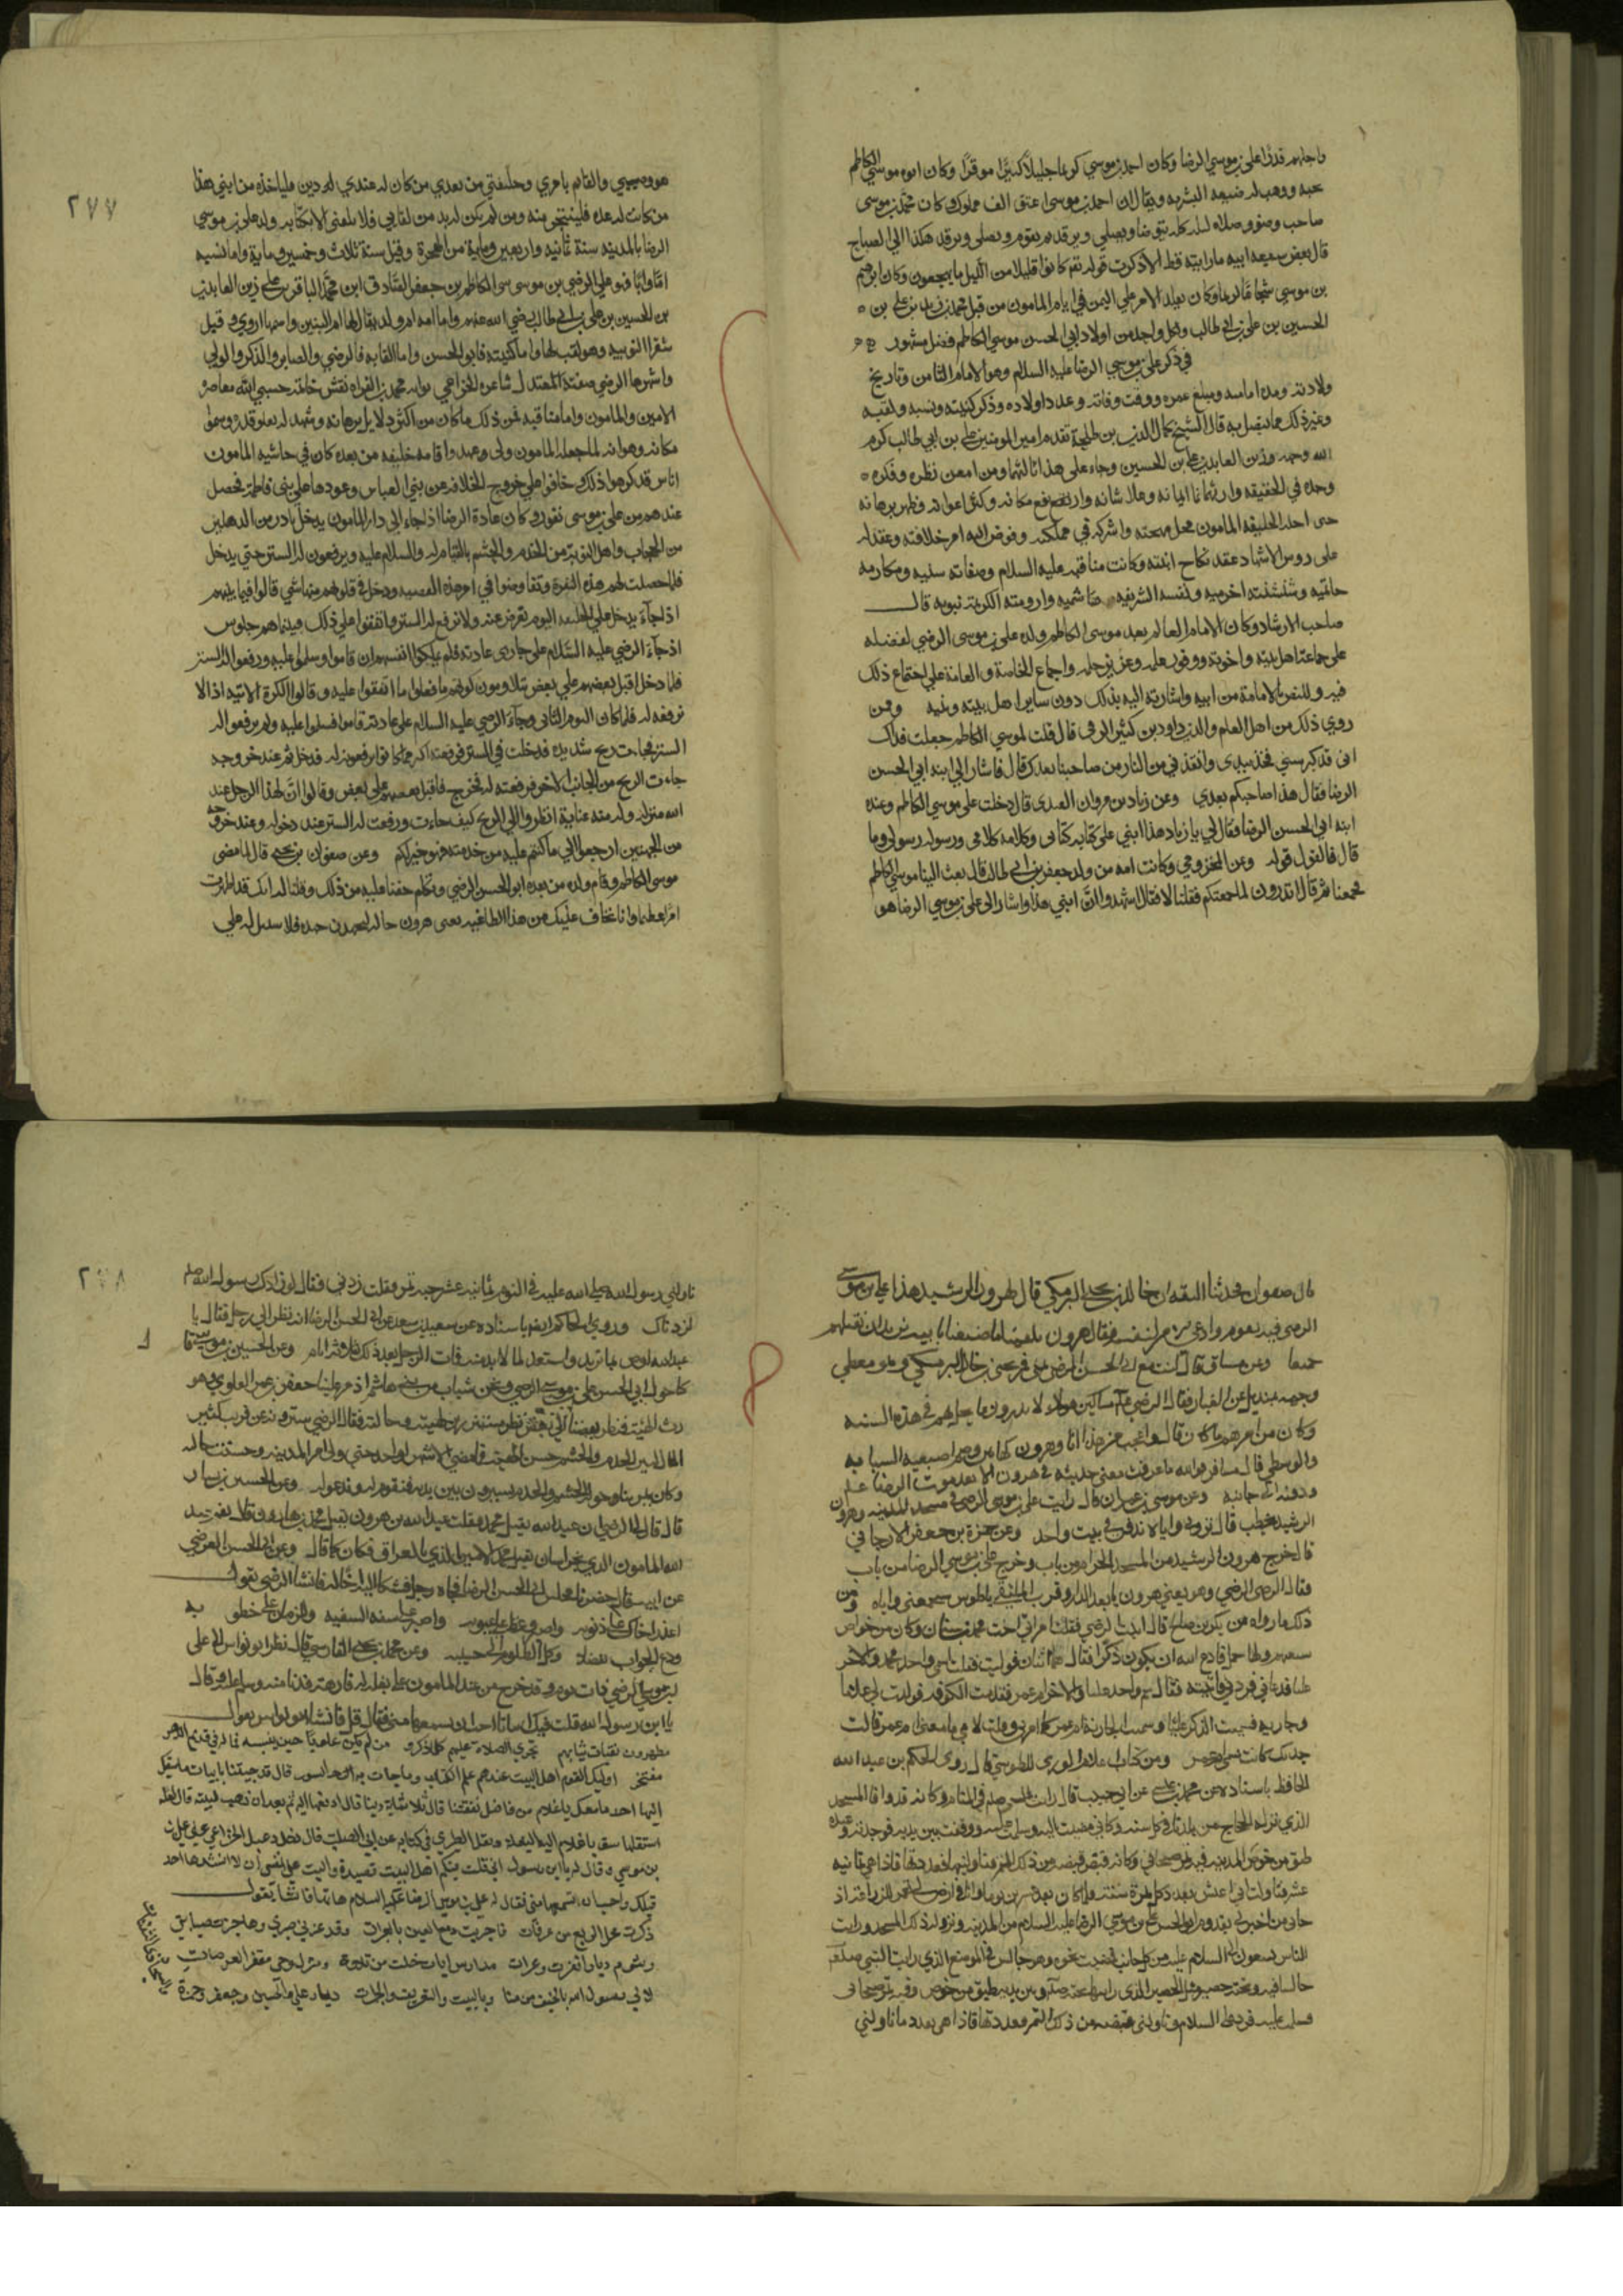 واجلهم قدرا علي بن موسي الرضا وكان احمد بن موسي كريما جليلا كبيرا موقرا وكان ابوه موسي الكاظم
يحبه ووهب له ضيعته اليسيريه ويقال ان احمد بن موسى اعتق الف مملوك وكان محمد بن موسى
صاحب وضو وصلاه ليله كله يتوضا ويصلي ويرقد ثم يقوم ويصلي ويرقد هكذا الي الصباح
قال بعض شيعة ابيه ما رايته قط الا ذكرت قوله تعم كانوا قليلا من الليل ما يهجعون وكان ابرهيم
بن موسي شجاعا كريما وكان تقلد الامر علي اليمن في ايام المامون من قبل محمد بن زيد بن علي بن
الحسين بن علي بن ابي طالب ولكل واحد من اولاد ابي الحسن موسي الكاظم فضل مشهور
في ذكر علي بن موسي الرضا عليه السلام وهو الامام الثامن وتاريخ
ولادته ومدة امامته ومبلغ عمره ووقت وفاته وعدد اولاده وذكر كنيته ونسبه ولقبه
وغير ذلك مما يتصل به قال الشيخ كمال الدين بن طلحة تقدم امير المومنين علي بن ابي طالب كرم
الله وجهه وزين العابدين علي بن الحسين وجاء علي هذا ثالثهما ومن امعن نظره وفكره
وجده في الحقيقه وارثهما نما ايمانه وعلا شانه وارتفع مكانه وكثر اعوانه وظهر برهانه
حتى احله الخليفه المامون محل مهجته واشركه في مملكته وفوض اليه امر خلافته وعقد له
على روس الاشهاد عقد نكاح ابنته وكانت مناقبه عليه السلام وصفاته سنيه ومكارمه
حاتميه وشنشنته اخزميه ونفسه الشريفه هاشميه وارومته الكريمة نبويه قال
صاحب الارشاد وكان الامام العالم بعد موسى الكاظم ولده علي بن موسى الرضي لفضله
على جماعة اهل بيته واخوته ووفور علمه وغزير حلمه واجماع الخاصة والعامة علي اجتماع ذلك
فيه وللنص بالامامة من ابيه واشارته اليه بذلك دون ساير اهل بيته وبنيه وممن
روي ذلك من اهل العلم والدين داود بن كثير الرقى قال قلت لموسي الكاظم جعلت فداك
اني قد كبر سني فخذ بيدي وانقذني من النار من صاحبنا بعدك قال فاشار الي ابنه ابي الحسن
الرضا فقال هذا صاحبكم بعدي وعن زياد بن مروان العبدى قال دخلت على موسي الكاظم وعنده
ابنه ابي الحسن الرضا فقال لي يا زياد هذا ابني علي كتابه كتابى وكلامه كلامي ورسوله رسولي وما
قال فالقول قوله وعن المخزومي وكانت امه من ولد جعفر بن ابي طالب قال بعث الينا موسي الكاظم
فجمعنا ثم قال اتدرون لما جمعتكم فقلنا لا فقال اشهدوا ان ابني هذا واشار الى علي بن موسي الرضا هو
٢٧٧
هو وصيي والقايم بامري وخليفتي من بعدي من كان له عندي له دين فلياخذه من ابني هذا
من كانت له عده فليتنجزها منه ومن لم يكن له بد من لقاىي فلا يلقني الا بكتابه ولد علي بن موسي
الرضا بالمدينه سنة ثمانيه واربعين وماية من الهجرة وقيل سنة ثلاث وخمسين وماية واما نسبه
امّا وابًا فهو علي الرضي بن موسى الكاظم بن جعفر الصّادق ابن محمد الباقر بن علي زين العابدين
بن الحسين بن علي بن ابي طالب رضي الله عنهم واما امه ام ولد يقال لها ام البنين واسمها اروي وقيل
شقرا النوبيه وهو لقب لها واما كنيته فابو الحسن واما القابه فالرضي والصابر والذكي والولي
واشهرها الرضي صفته المعتدل شاعره الخزاعي بوابه محمد بن الفراه نقش خاتمه حسبي الله معاصره
الامين والمامون واما مناقبه فمن ذلك ما كان من اكثر دلايل برهانه وشهد له بعلو قدره وسمو
مكانه وهو انه لما جعله المامون ولي عهده واقامه خليفه من بعده كان في حاشيه المامون
اناس قد كرهوا ذلك وخافوا علي خروج الخلافه عن بني العباس وعودها علي بني فاطمة فحصل
عندهم من علي بن موسى نفور وكان عادة الرضا اذا جاء الي دار المامون يدخل بادر من الدهليز
من الحجاب واهل النوبة من الخدم والحشم بالقيام له والسلام عليه ويرفعون له الستر حتي يدخل
فلما حصلت لهم هذه النفرة وتفاوضوا في امر هذه القصه ودخل في قلوبهم منها شي قالوا فيما بينهم
اذا جاء يدخل علي الخليفه اليوم نعرض عنه ولا نرفع له الستر واتفقوا علي ذلك فبينما هم جلوس
اذ جاء الرضي عليه السّلام علي جاري عادته فلم يملكوا انفسهم ان قاموا وسلموا عليه ورفعوا له الستر
فلما دخل اقبل بعضهم علي بعض يتلاومون كونهم ما فعلوا ما اتفقوا عليه وقالوا الكرة الاتيه اذا لا
نرفعه له فلما كان اليوم الثاني وجاء الرضي عليه السلام علي عادته قاموا فسلموا عليه ولم يرفعوا له
الستر فجاءت ريح شديده فدخلت في الستر فرفعته اكثر مما كانوا يرفعونه له فدخل ثم عند خروجه
جاءت الريح من الجانب الاخر فرفعته له فخرج فاقبل بعضهم علي بعض وقالوا ان لهذا الرجل عند
الله منزله وله منه عناية انظروا الي الريح كيف جاءت ورفعت له الستر عند دخوله وعند خروجه
من الجهتين ارجعوا الي ما كنتم عليه من خدمته فهو خير لكم وعن صفوان بن يحيي قال لما مضى
موسي الكاظم وقام ولده من بعده ابو الحسن الرضي وتكلم خفنا عليه من ذلك وقلنا له انك قد اظهرت
امرًا عظيما وانا نخاف عليك من هذا الطاغيه يعنى هرون قال ليجهدن جهده فلا سبيل له علي
قال صفوان فحدثنا الثقه ان خالد بن يحيي البرمكي قال لهرون الرشيد هذا علي بن موسي
الرضى قد تقدم وادعى الامر لنفسه فقال هرون يكفينا ما صنعنا بابيه تريد ان نقتلهم
جميعا وعن مسافر قال كنت مع ابي الحسن الرضى بمنى فمر يحيى بن خالد البرمكي وهو مغطي
وجهه بمنديل من الغبار فقال الرضي مساكين هولاء لا يدرون ما يحل بهم في هذه السنه
وكان من امرهم ما كان قال واعجب من هذا انا وهرون كهاتين وضم اصبعيه السبابه
والوسطي قال مسافر فوالله ما عرفت معنى حديثه في هرون الا بعد موت الرضا عليه
ودفنه الي جانبه وعن موسى بن عمران قال رايت علي بن موسى الرضى في مسجد المدينه وهرون
الرشيد يخطب قال تروني واياه ندفن في بيت واحد وعن حمزة بن جعفر الارجاني
قال خرج هرون الرشيد من المسجد الحرام من باب وخرج علي بن موسي الرضا من باب
فقال الرضي وهو يعني هرون يا بعد الدار وقرب الملتقي يا طوس ستجمعني واياه ومن
ذلك ما رواه بكر بن صالح قال اتيت الرضي فقلت امراتي اخت محمد بن سنان وكان من خواص
شيعتهم ولها حمل فادع الله ان يكون ذكرًا فقال هما اثنان فوليت فقلت اسمي واحد محمد والاخر
عليا فدعاني فردني فاتيته فقال سم واحد عليا والاخر ام عمر فقدمت الكوفه فولدت لي غلاما
وجاريه فسميت الذكر عليا وسميت الجارية ام عمر كما امرني وقلت لامي ما معنى ام عمر قالت
جدتك كانت تسمي ام عمر ومن كتاب اعلام الوري للطبرسي قال روى الحكم بن عبد الله
الحافظ باسناده عن محمد بن عيسى عن ابي حبيب قال رايت النبي صلعم في المنام وكانه قد وافا المسجد
الذي نزله الحجاج من بلدنا في كل سنه وكاني مضيت اليه وسلمت عليه ووقفت بين يديه فوجدته وعنده
طبق من خوص المدينه فيه تمر صيحاني وكانه قبض قبضه من ذلك التمر فناولنيها فعددتها فاذا هي ثمانيه
عشر
حتى من اخبرني بقدوم ابي الحسن علي بن موسي الرضا عليه السلام من المدينه ونزوله ذلك المسجد ورايت
الناس يسعون الي السلام عليه من كل جانب فمضيت نحوه وهو جالس في الموضع الذي رايت النبي صلعم
جالسا فيه وتحته حصير مثل الحصير الذي رايتها تحته صلعم وبين يديه طبق من خوص وفيه تمر صيحاني
فسلمت عليه فرد علي السلام وناولني قبضه من ذلك التمر فعددتها فاذا هي بعدد ما ناولني
٢٧٨
ناولني رسول الله صلي الله عليه في النوم ثمانيه عشر حبه تمر فقلت زدني فقال لو زادك رسول الله صلعم
لزدناك وروي الحاكم ايضا باسناده عن سعيد بن سعد عن ابي الحسن الرضا انه نظر الي رجل فقال يا
عبد الله اوص بما تريد واستعد لما لا بد منه فمات الرجل بعد ذلك بثلاثة ايام وعن الحسين بن موسي قال
كنا حول ابي الحسن علي بن موسى الرضي ونحن شباب من بني هاشم اذ مر علينا جعفر بن عمر العلوي وهو
رث الهيئة فنظر بعضنا الي بعض نظر مستنذر بهيئته وحالته فقال الرضي سترونه عن قريب كثير
المال كثير الخدم والحشم حسن الهيئة فما مضي الا شهر واحد حتي ولي امر المدينه وحسنت حاله
وكان يمر بنا وحوله الحشم والخدم يسيرون بين يديه فنقوم له وندعوا له وعن الحسين بن يسار
قال قال لي الرضا ان عبد الله يقتل محمد فقلت عبد الله بن هرون يقتل محمد بن هارون قال نعم عبد
الله المامون الذي بخراسان يقتل محمد الامين الذي بالعراق فكان كما قال وعن ابي الحسن القرضي
عن ابيه قال حضرنا مجلس ابي الحسن الرضا فجاه رجل فشكا اليه اخًا له فانشا الرضي يقول
اعذر اخاك علي ذنوبه واصبر وغط علي عيوبه واصبر علي سفه السفيه وللزمان علي خطوبه
ودع الجواب تفضلا وكل الظلوم الي حسيبه وعن محمد بن يحيي الفارسي قال نظر ابو نواس الي علي
بن موسي الرضي ذات يوم وقد خرج من عند المامون علي بغله له فارهه فدنا منه وسلم عليه وقال
يا ابن رسول الله قلت فيك ابياتا احب ان تسمعها مني فقال قل فانشا ابو نواس يقول
مطهرون نقيات ثيابهم تجري الصلاه عليهم كلما ذكرو من لم يكن علويًا حين ينسبه فما له في قديم الدهر
مفتخر اوليك القوم اهل البيت عندهم علم الكتاب وما جات به السور قال قد جيتنا بابيات ما سبقك
اليها احد ما معك يا غلام من فاضل نفقتنا قال ثلاثماية دينار قال ادفعها اليه ثم بعد ان ذهب لبيته قال لعله
استقلها سق يا غلام اليه البغله ونقل الطبري في كتابه عن ابي الصلت قال دخل دعبل الخزاعي علي علي
بن موسي وقال له يا ابن رسول الله اني قلت فيكم اهل البيت قصيدة واليت علي نفسي ان لا انشدها احد
قبلك واحب ان تسمعها مني فقال له علي بن موسى الرضا عليه السلام هاتها فانشا يقول
ذكرت محل الربع من عرفات فاجريت دمع العين بالعبرات وقد عزني صبري وهاجت صبابتي
رسوم ديار اقفرت وعرات مدارس ايات خلت من تلاوة ومنزل وحي مقفر العرصات
لال رسول الله بالخيف من منا وبالبيت والتعريف والجمرات ديار علي والحسين وجعفر وحمزة